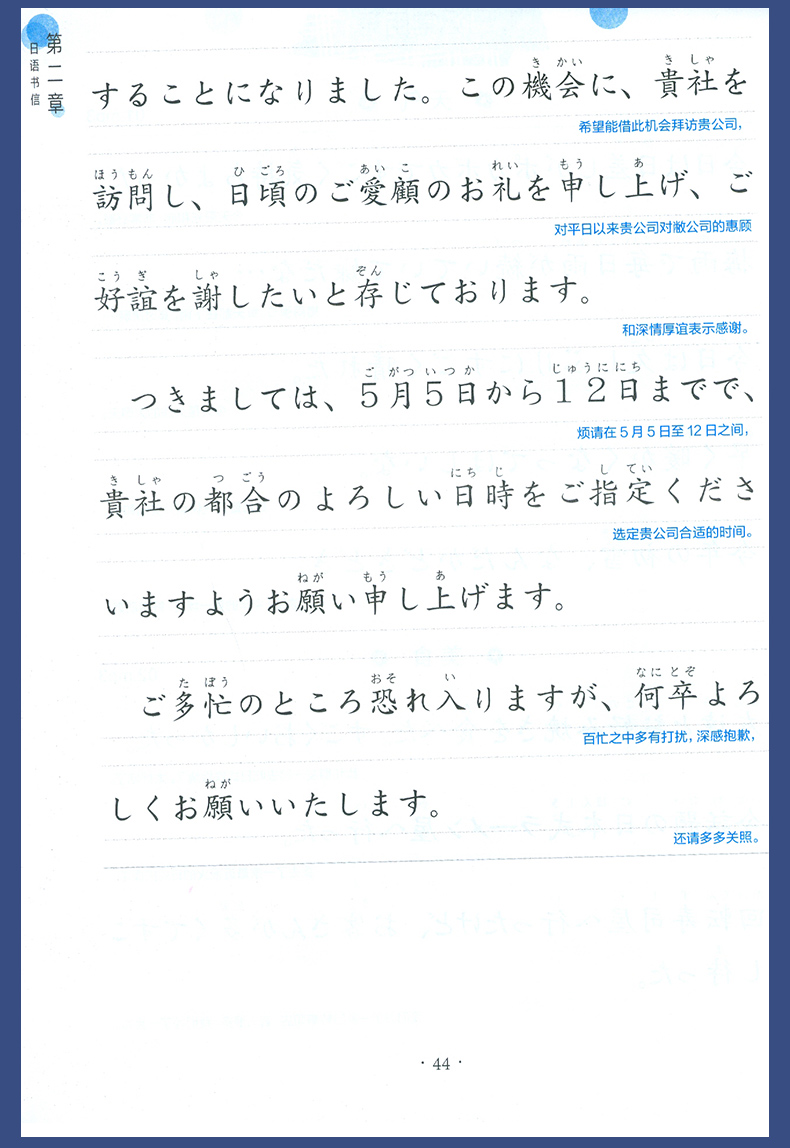 第二章
日语书信
き かい き しゃ
することになりました。この機会に、貴社を
希望能借此机会拜访贵公司，
ほう もん ひ ごろ あい こ れい もう あ
訪問し、日頃のご愛顧のお礼を申し上げ、ご
对平日以来贵公司对敝公司的惠顾
こう ぎ しゃ ぞん
好誼を謝したいと存じております。
和深情厚谊表示感谢。
ご がつ いつ か じゅうににち
つきましては、５月５日から１２日までで、
烦请在 5 月 5 日至 12 日之间，
き しゃ つ ごう にち じ し てい
貴社の都合のよろしい日時をご指定くださ
选定贵公司合适的时间。
ねが もう あ
いますようお願い申し上げます。
た ぼう おそ い なに とぞ
ご多忙のところ恐れ入りますが、何卒よろ
百忙之中多有打扰，深感抱歉，
ねが
しくお願いいたします。
还请多多关照。
· 44 ·